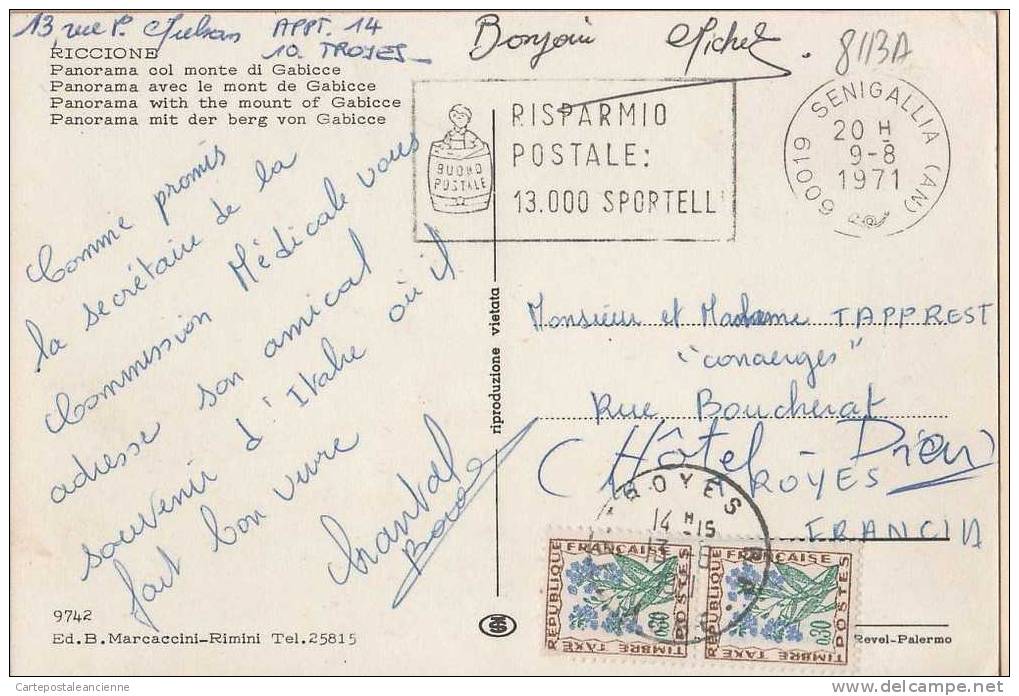 13, rue P. APPT. 14
10. TROYES
Bonjour Michel.
8113A
RICCIONE
Panorama col monte di Gabicce
Panorama avec le mont de Gabicce
Panorama with the mount of Gabicce
Panorama mit der berg von Gabicce
BUONO
POSTALE
RISPARMIO
POSTALE:
13.000 SPORTELLI
60019 SENIGALLIA (AN)
20 H
9-8
1971
Comme promis
la secrétaire de la
Commission Médicale vous
adresse son amical
souvenir d'Italie où il
fait bon vivre
Chantal
riproduzione vietata
Monsieur et Madame TAPPREST
"concierges"
Rue Boucherat
(Hôtel-Dieu)
TROYES
FRANCIA
TROYES
14 H 15
RÉPUBLIQUE FRANÇAISE
POSTES
0,30
TIMBRE TAXE
RÉPUBLIQUE FRANÇAISE
POSTES
0,30
TIMBRE TAXE
9742
Ed.B.Marcaccini-Rimini Tel.25815
Revel-Palermo
Cartepostaleancienne
delcampe.net